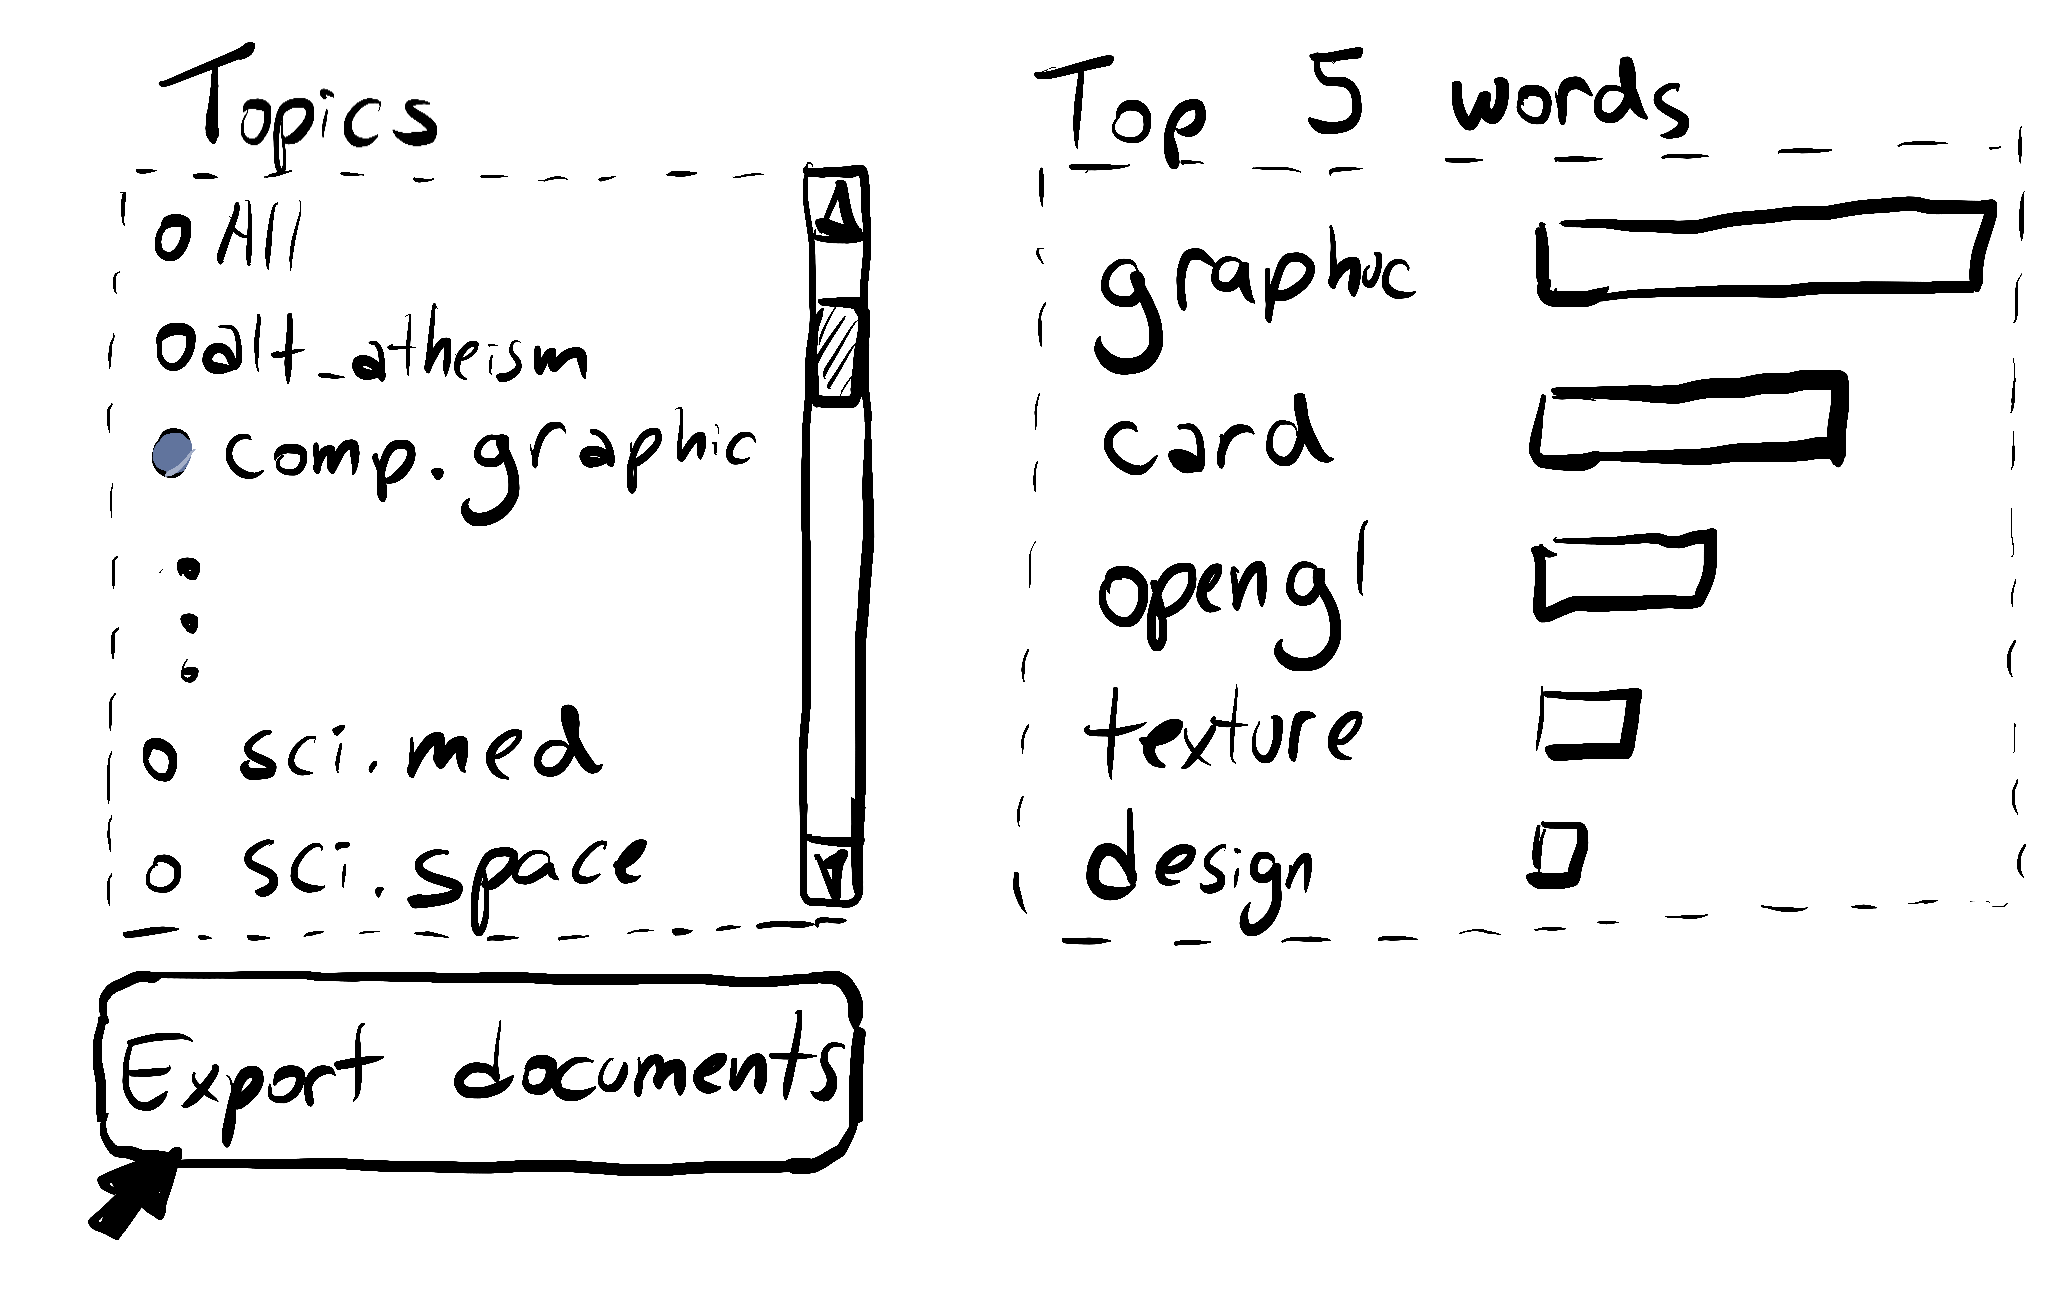 Topics
All
alt_atheism
comp.graphic
sci.med
sci.space
Export documents
Top 5 words
graphic
card
opengl
texture
design